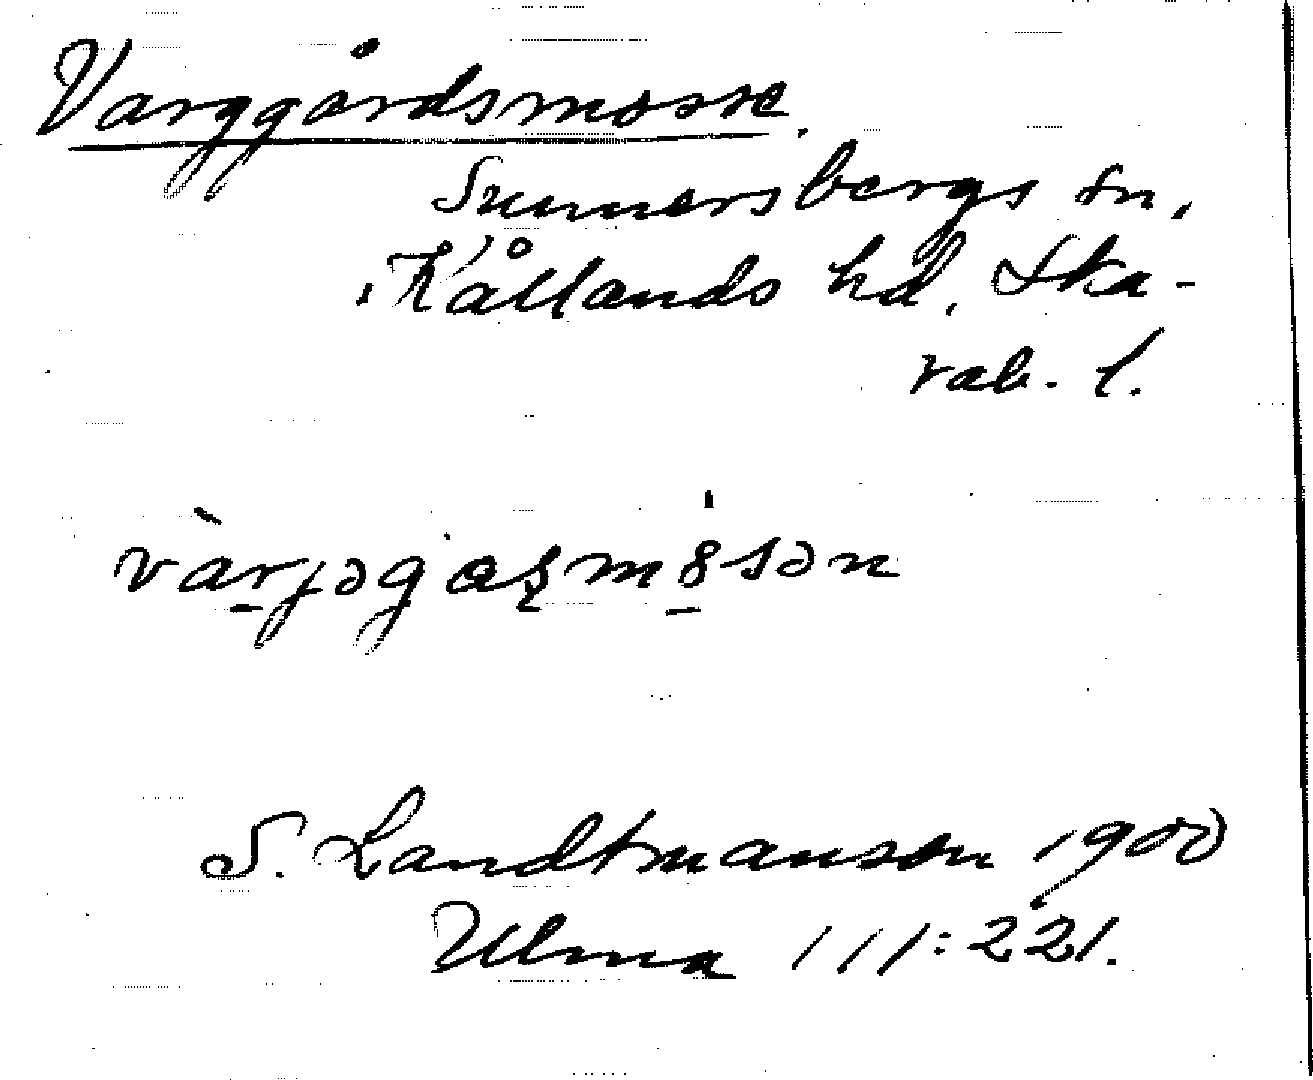 Varggårdsmosse.
Sunnersbergs sn,
Kållands hd, Ska-
rab. l.
vàrjəgaʂmȯsən
S. Landtmanson 1900
Ulma 111:221.